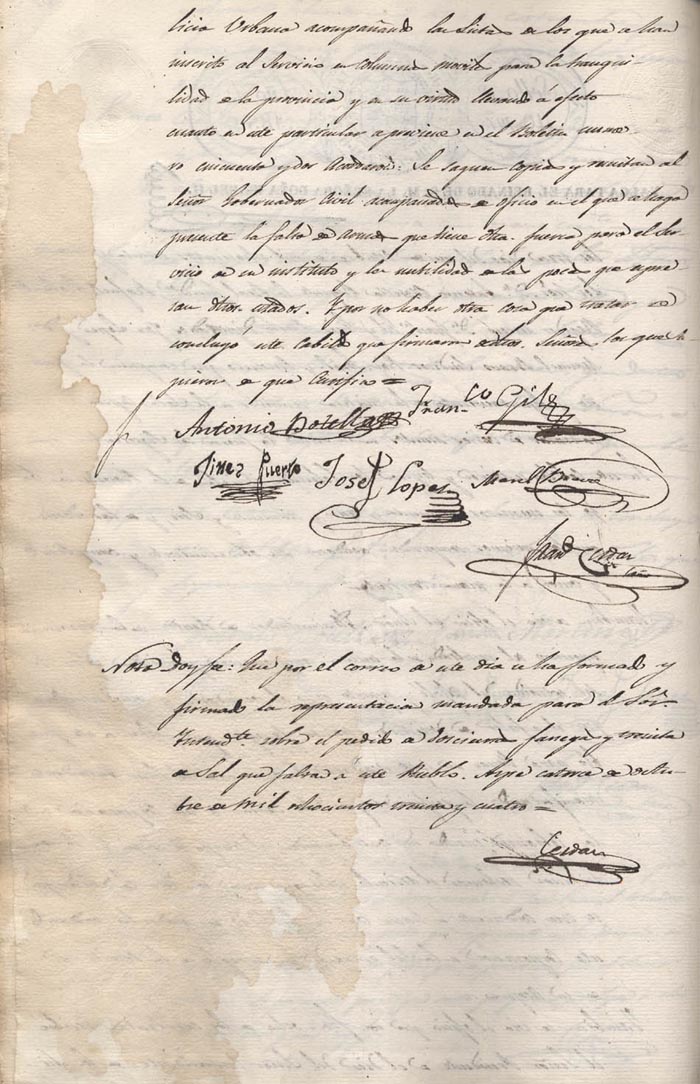 licia Urbana acompañando la Lista de los que se han
inscrito al Servicio en columna movile para la tranqui-
lidad de la provincia y en su virtud llevando á efecto
cuanto en este particular se previene en el Boletin nume-
ro cincuenta y dos Acordaron: Se saquen copia y remitan al
Señor Gobernador Civil acompañada de oficio en el que se haga
presente la falta de armas que tiene dha. fuerza para el Ser-
vicio de su instituto y la nutilidad de las pocas que apre
san dhos. estados. Y por no haber otra cosa que tratar se
concluyó este Cabildo que firmaron dhos. Señores los que su-
pieron de que Certifico =
Antonio Botella Fran.co Gil
Jinez Puerto Josef Lopez Manl. Bravo
Fran.co Cerdan
Nota Doy fe: Que por el correo de este dia se ha formado y
firmado la representacion mandada para el Sor.
Intend.te sobre el pedido de doscientas fanegas y treinta
de Sal que falta a este Pueblo. Aspe catorce de Octu-
bre de Mil ochocientos treinta y cuatro =
Cerdan